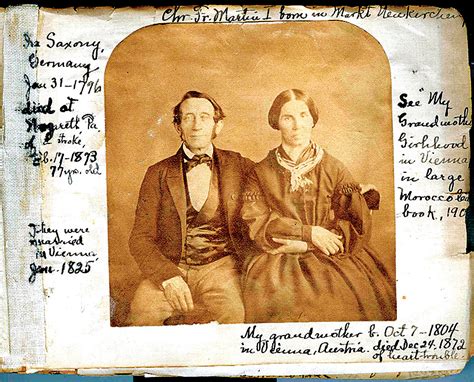 Chr. Fr. Martin I born in Markt Neukirchen
in Saxony,
Germany
Jan 31-1796
died at
Nazareth Pa.
of a stroke,
Feb. 17-1873
77 yrs. old
They were
married
in Vienna
Jan. 1825
See "My
Grandmother
Girlhood
in Vienna
in large
Morocco
book, 190
My grandmother b. Oct 7-1804
in Vienna, Austria. died Dec 24. 1872
of heart trouble